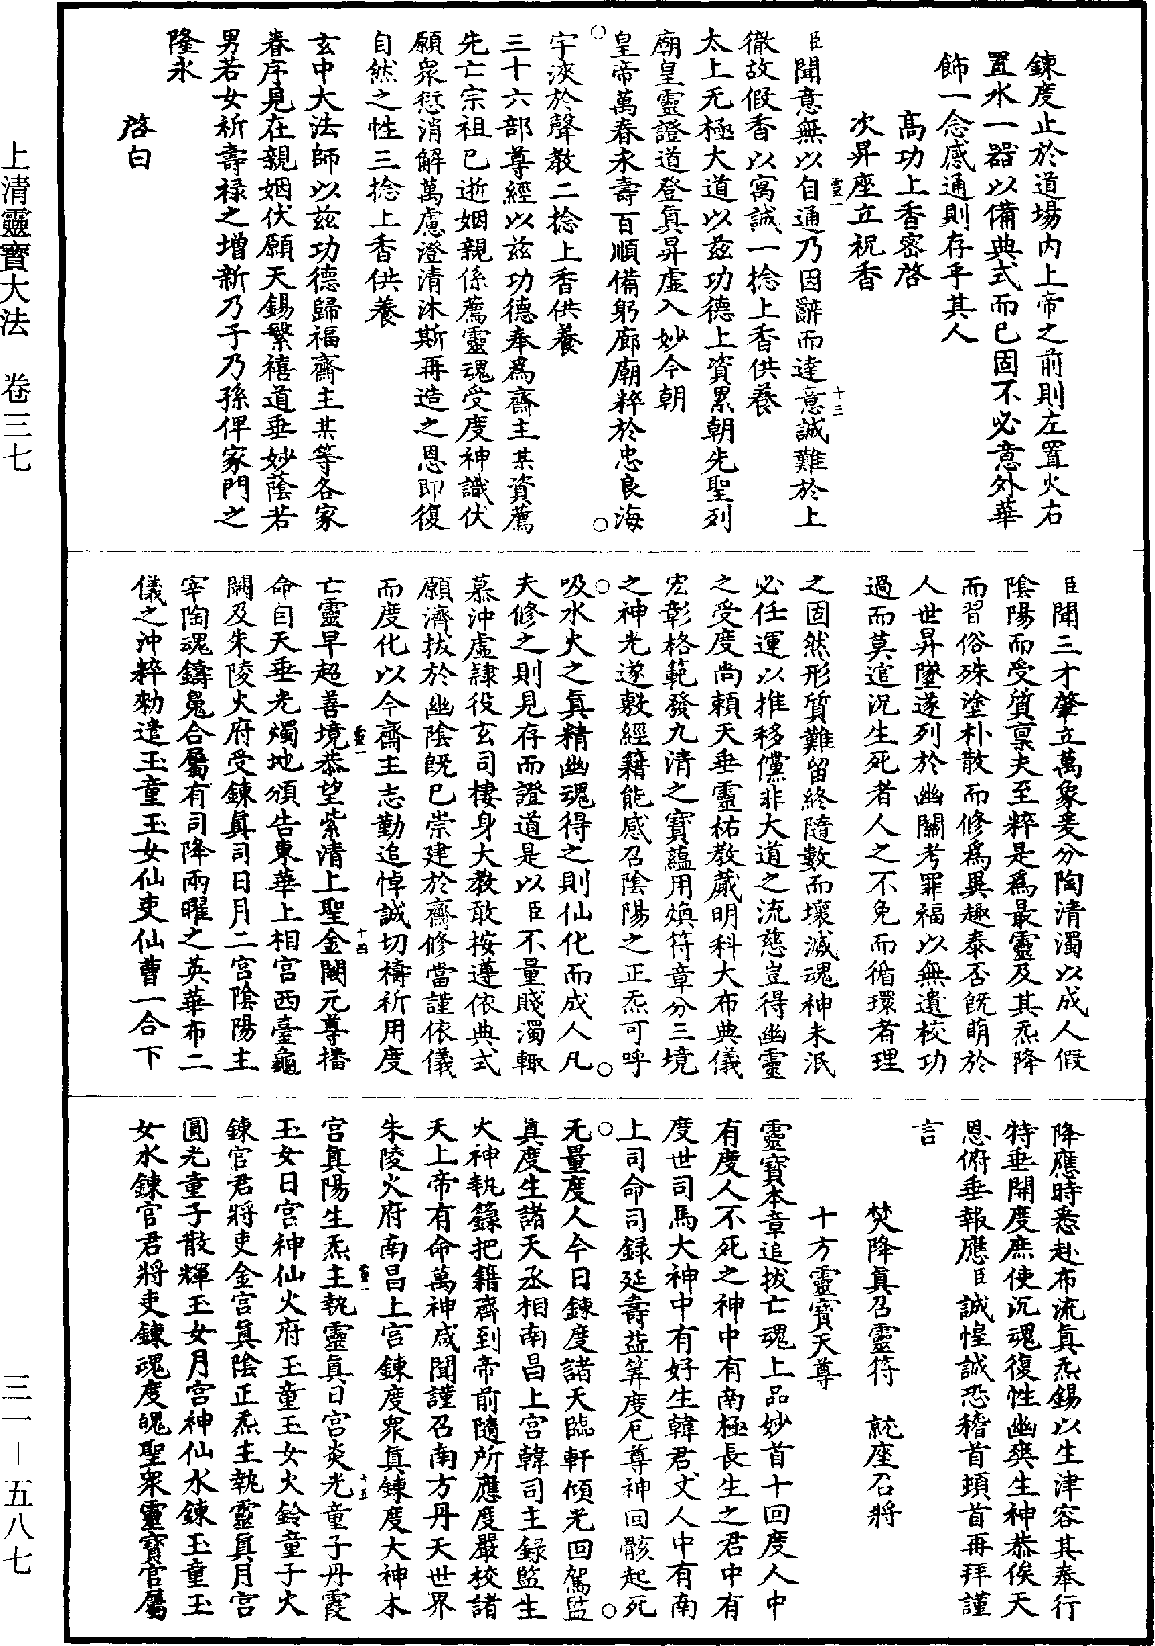 鍊度止於道場內上帝之前則左置火右
置水一器以備典式而已固不必意外華
飾一念感通則存乎其人
高功上香密啓
次昇座立祝香
臣聞意無以自通乃因辭而達意誠難於上
徹故假香以寓誠一捻上香供養
太上无極大道以兹功德上資累朝先聖列
廟皇靈證道登真昇虛入妙今朝
皇帝萬春永壽百順備躬廊廟粹於忠良海
宇浹於聲教二捻上香供養
三十六部尊經以兹功德奉爲齋主某資薦
先亡宗祖已逝姻親係薦靈魂受度神識伏
願衆愆消解萬慮澄清沐斯再造之恩即復
自然之性三捻上香供養
玄中大法師以兹功德歸福齋主某等各家
眷序見在親姻伏願天錫繁禧道垂妙蔭若
男若女祈壽祿之增新乃子乃孫俾家門之
隆永
啓白
臣聞三才肇立萬象爰分陶清濁以成人假
陰陽而受質稟夫至粹是爲最靈及其炁降
而習俗殊塗朴散而修爲異趣泰否旣萌於
人世昇墜遂列於幽關考罪福以無遺校功
過而莫逭況生死者人之不免而循環者理
之固然形質難留終隨數而壞滅魂神未泯
必任運以推移儻非大道之流慈豈得幽靈
之受度尚賴天垂靈祐教蕆明科大布典儀
宏彰格範發九清之寶蘊用煥符章分三境
之神光遂敷經籍能感召陰陽之正炁可呼
吸水火之真精幽魂得之則仙化而成人凡
夫修之則見存而證道是以臣不量賤濁輒
慕沖虛隸役玄司棲身大教敢按遵依典式
願濟拔於幽陰旣已崇建於齋修當謹依儀
而度化以今齋主志勤追悼誠切禱祈用度
亡靈早超善境恭望紫清上聖金闕元尊播
命自天垂光燭地頒告東華上相宮西臺龜
闕及朱陵火府受鍊真司日月二宮陰陽主
宰陶魂鑄魄合屬有司降兩曜之英華布二
儀之沖粹勑遣玉童玉女仙吏仙曹一合下
降應時悉赴布流真炁錫以生津容其奉行
特垂開度庶使沉魂復性幽爽生神恭俟天
恩俯垂報應臣誠惶誠恐稽首頓首再拜謹
言
焚降真召靈符　就座召將
十方靈寶天尊
靈寶本章追拔亡魂上品妙首十回度人中
有度人不死之神中有南極長生之君中有
度世司馬大神中有好生韓君丈人中有南
上司命司録延壽益筭度厄尊神回骸起死
无量度人今日鍊度諸天臨軒傾光回駕監
真度生諸天丞相南昌上宮韓司主録監生
大神執籙把籍齊到帝前隨所應度嚴校諸
天上帝有命萬神咸聞謹召南方丹天世界
朱陵火府南昌上宮鍊度衆真鍊度大神木
宮真陽生炁主執靈真日宮炎光童子丹霞
玉女日宮神仙火府玉童玉女火鈴童子火
鍊官君將吏金宮真陰正炁主執靈真月宮
圓光童子散輝玉女月宮神仙水鍊玉童玉
女水鍊官君將吏鍊魂度魄聖衆靈寶官屬
靈一
十三
靈一
十四
靈一
十五
上清靈寶大法　卷三七
三一—五八七